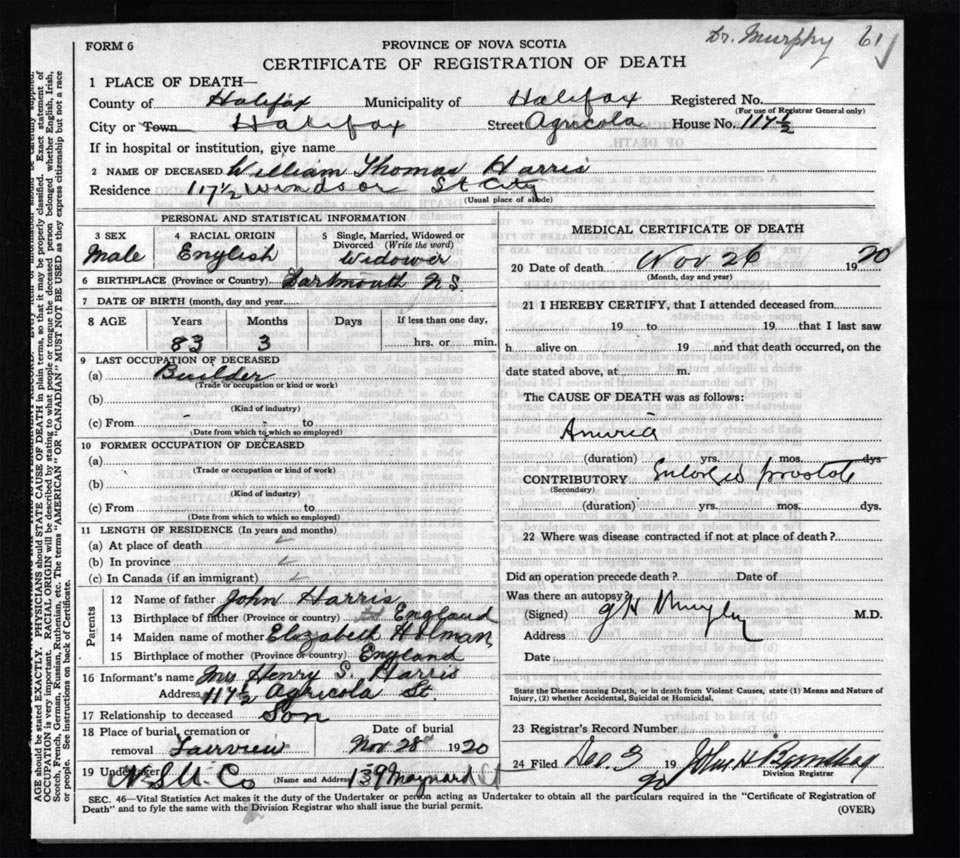 Dr. Murphy 61
FORM 6
PROVINCE OF NOVA SCOTIA
CERTIFICATE OF REGISTRATION OF DEATH
1 PLACE OF DEATH—
County of Halifax Municipality of Halifax Registered No.
(For use of Registrar General only)
City or Town Halifax Street Agricola House No. 117½
If in hospital or institution, give name
2 NAME OF DECEASED William Thomas Harris
Residence 117½ Windsor St City
(Usual place of abode)
PERSONAL AND STATISTICAL INFORMATION
3 SEX 4 RACIAL ORIGIN 5 Single, Married, Widowed or Divorced (Write the word)
Male English Widower
6 BIRTHPLACE (Province or Country) Dartmouth N.S.
7 DATE OF BIRTH (month, day and year)
8 AGE Years Months Days If less than one day,
83 3 hrs. or min.
9 LAST OCCUPATION OF DECEASED
(a) Builder
(Trade or occupation or kind or work)
(b)
(Kind of industry)
(c) From to
(Date from which to which so employed)
10 FORMER OCCUPATION OF DECEASED
(a)
(Trade or occupation or kind of work)
(b)
(Kind of industry)
(c) From to
(Date from which to which so employed)
11 LENGTH OF RESIDENCE (In years and months)
(a) At place of death
(b) In province
(c) In Canada (if an immigrant)
Parents
12 Name of father John Harris
13 Birthplace of father (Province or country) England
14 Maiden name of mother Elizabeth Holman
15 Birthplace of mother (Province or country) England
16 Informant's name Mrs Henry S. Harris
Address 117½ Agricola St
17 Relationship to deceased Son
18 Place of burial, cremation or removal Fairview Date of burial Nov 28 1920
19 Undertaker N.S.U. Co (Name and Address) 139 Maynard St
MEDICAL CERTIFICATE OF DEATH
20 Date of death Nov 26 1920
(Month, day and year)
21 I HEREBY CERTIFY, that I attended deceased from
19 to 19 that I last saw
h alive on 19 and that death occurred, on the
date stated above, at m.
The CAUSE OF DEATH was as follows:
Anuria
(duration) yrs. mos. dys
CONTRIBUTORY Enlarged prostate
(Secondary)
(duration) yrs. mos. dys.
22 Where was disease contracted if not at place of death?
Did an operation precede death? Date of
Was there an autopsy?
(Signed) G H Murphy M.D.
Address
Date
State the Disease causing Death, or in death from Violent Causes, state (1) Means and Nature of
Injury, (2) whether Accidental, Suicidal or Homicidal.
23 Registrar's Record Number
24 Filed Dec. 3 19 20 John H
Division Registrar
SEC. 46—Vital Statistics Act makes it the duty of the Undertaker or person acting as Undertaker to obtain all the particulars required in the "Certificate of Registration of
Death" and to fyle the same with the Division Registrar who shall issue the burial permit.
(OVER)
AGE should be stated EXACTLY. PHYSICIANS should STATE CAUSE OF DEATH in plain terms, so that it may be properly classified. Exact statement of
OCCUPATION is very important. RACIAL ORIGIN will be described by stating to what people or tongue the deceased person belonged whether English, Irish,
Scotch, French, German, Russian, Ruthenian, etc. The terms "AMERICAN" OR "CANADIAN" MUST NOT BE USED as they express citizenship but not a race
or people. See instructions on back of Certificate.